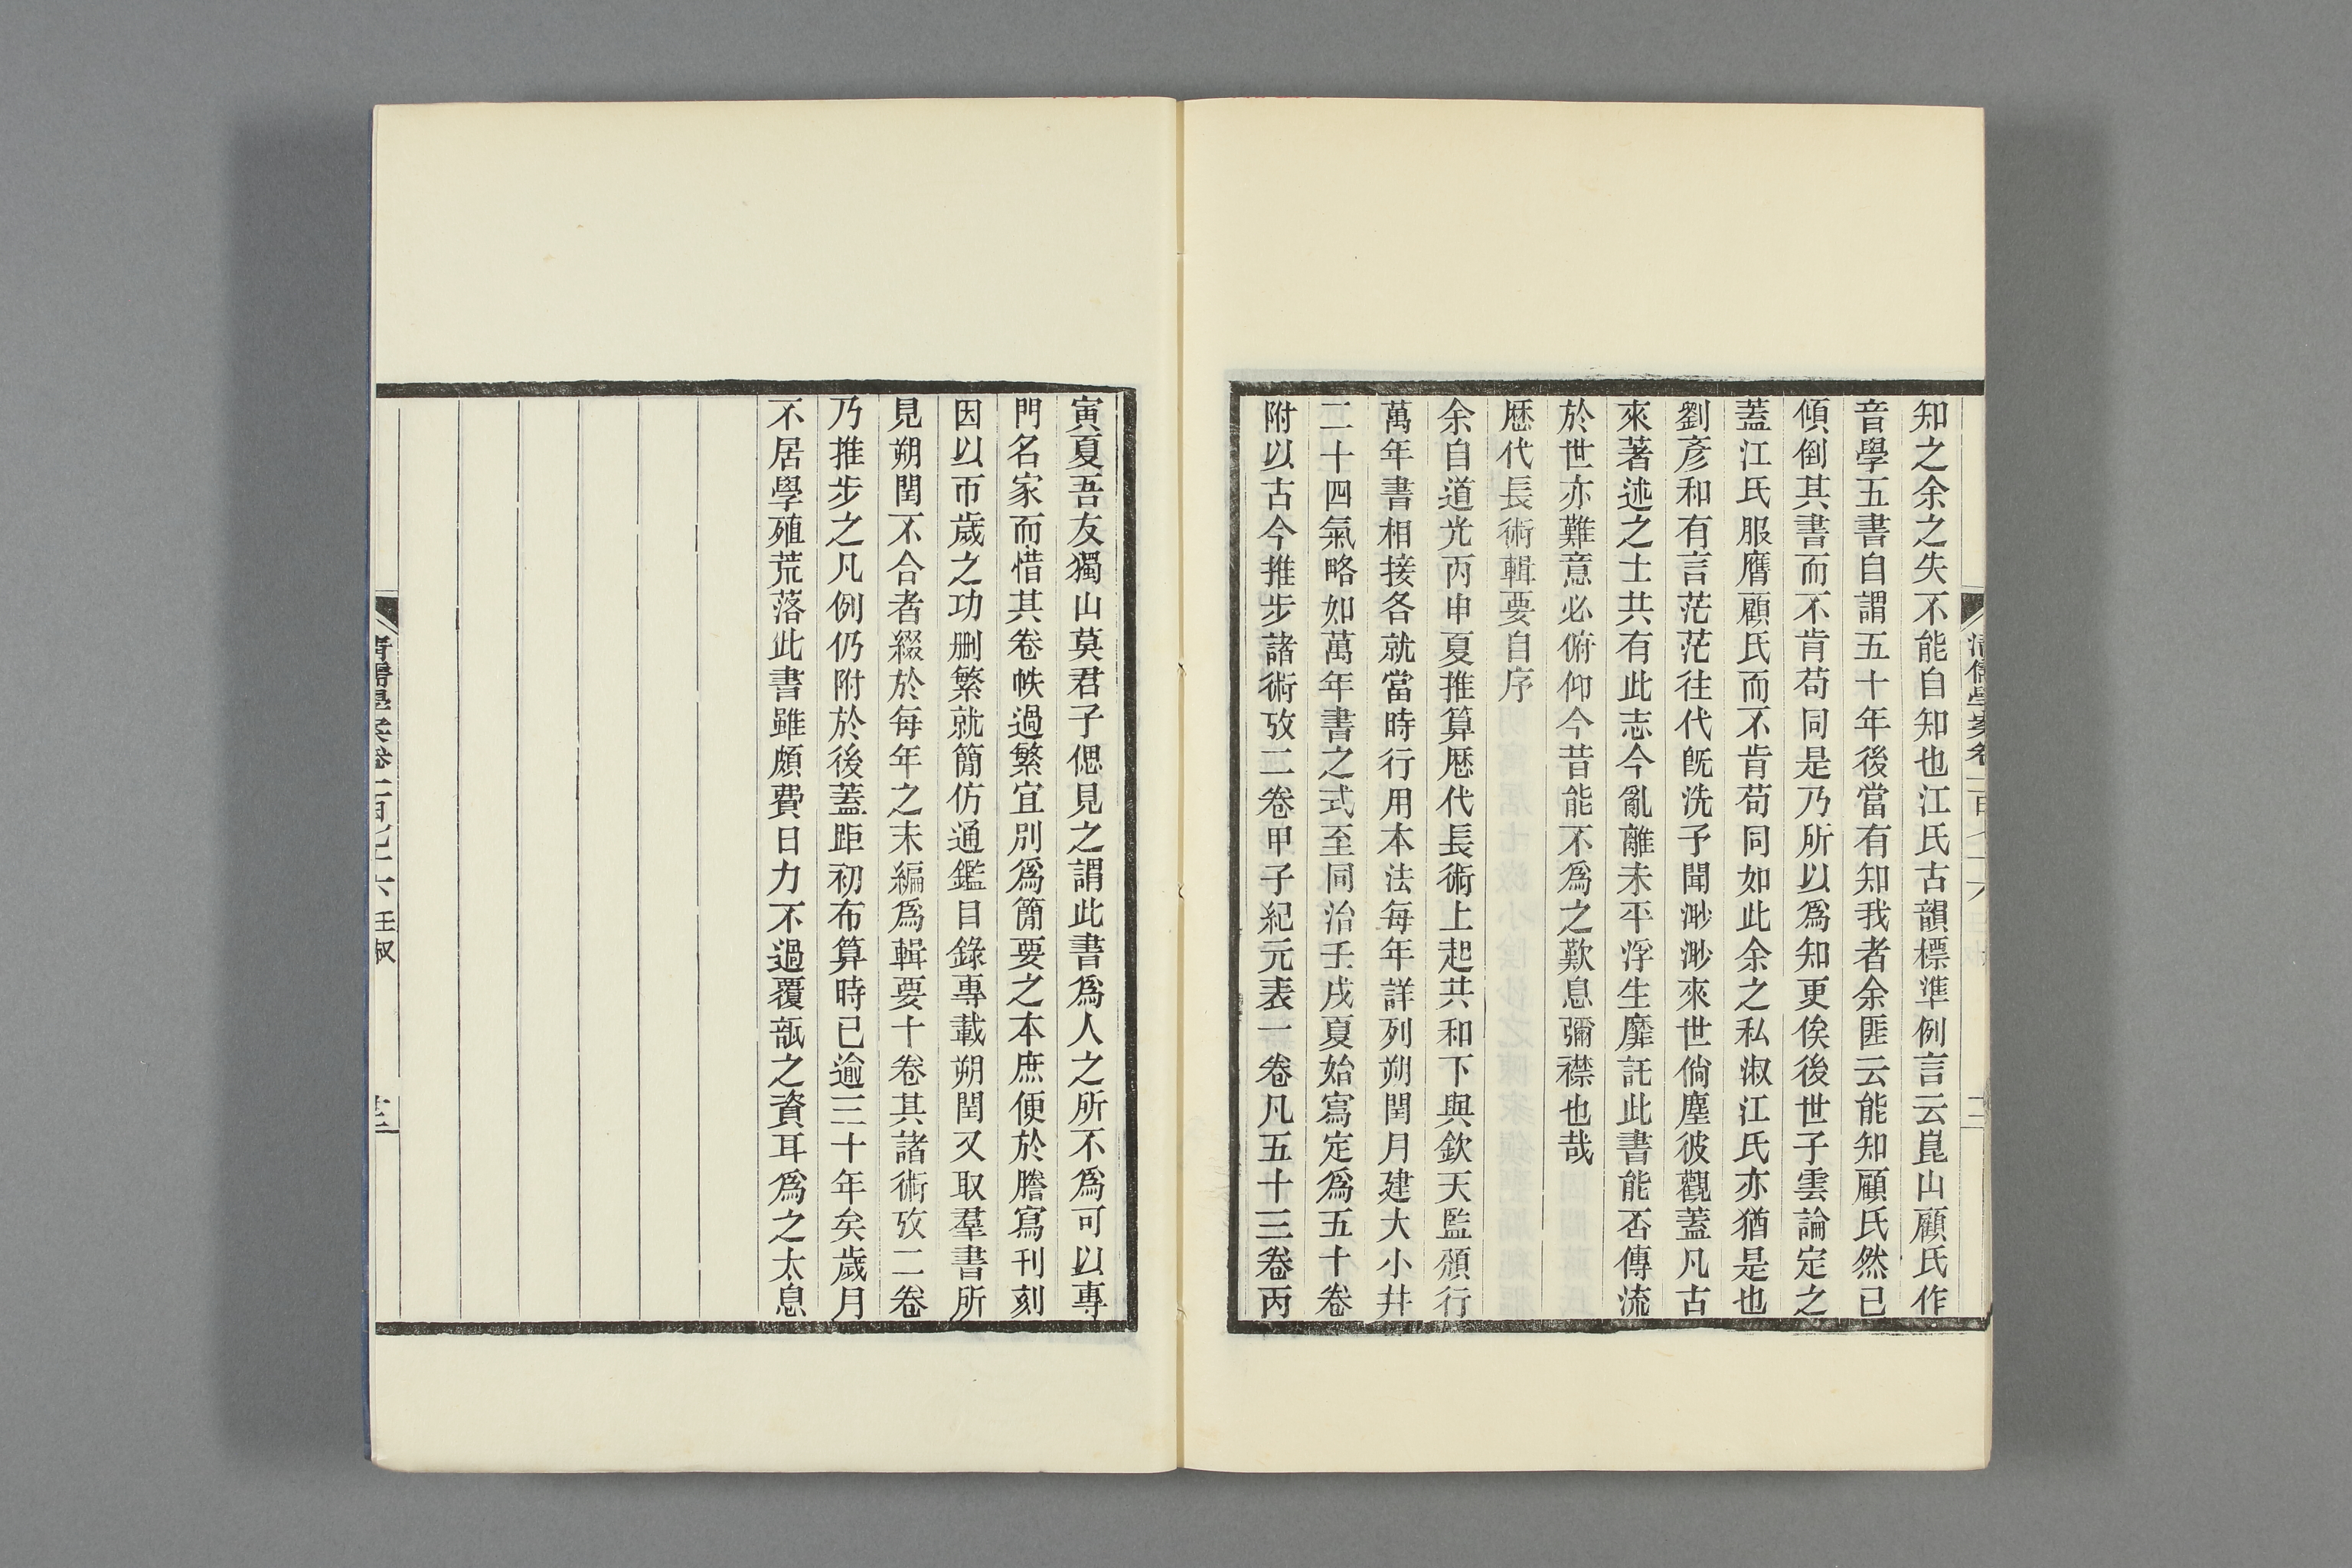 知之余之失不能自知也江氏古韻標準例言云崑山顧氏作
音學五書自謂五十年後當有知我者余匪云能知顧氏然已
傾倒其書而不肯苟同是乃所以爲知更俟後世子雲論定之
蓋江氏服膺顧氏而不肯苟同如此余之私淑江氏亦猶是也
劉彥和有言茫茫往代旣洗予聞渺渺來世倘塵彼觀蓋凡古
來著述之士共有此志今亂離未平浮生靡託此書能否傳流
於世亦難意必俯仰今昔能不爲之歎息彌襟也哉
歷代長術輯要自序
余自道光丙申夏推算歷代長術上起共和下與欽天監頒行
萬年書相接各就當時行用本法每年詳列朔閏月建大小幷
二十四氣略如萬年書之式至同治壬戌夏始寫定爲五十卷
附以古今推步諸術攷二卷甲子紀元表一卷凡五十三卷丙
寅夏吾友獨山莫君子偲見之謂此書爲人之所不爲可以專
門名家而惜其卷帙過繁宜別爲簡要之本庶便於謄寫刊刻
因以帀歲之功刪繁就簡仿通鑑目錄專載朔閏又取羣書所
見朔閏不合者綴於每年之末編爲輯要十卷其諸術攷二卷
乃推步之凡例仍附於後蓋距初布算時已逾三十年矣歲月
不居學殖荒落此書雖頗費日力不過覆瓿之資耳爲之太息